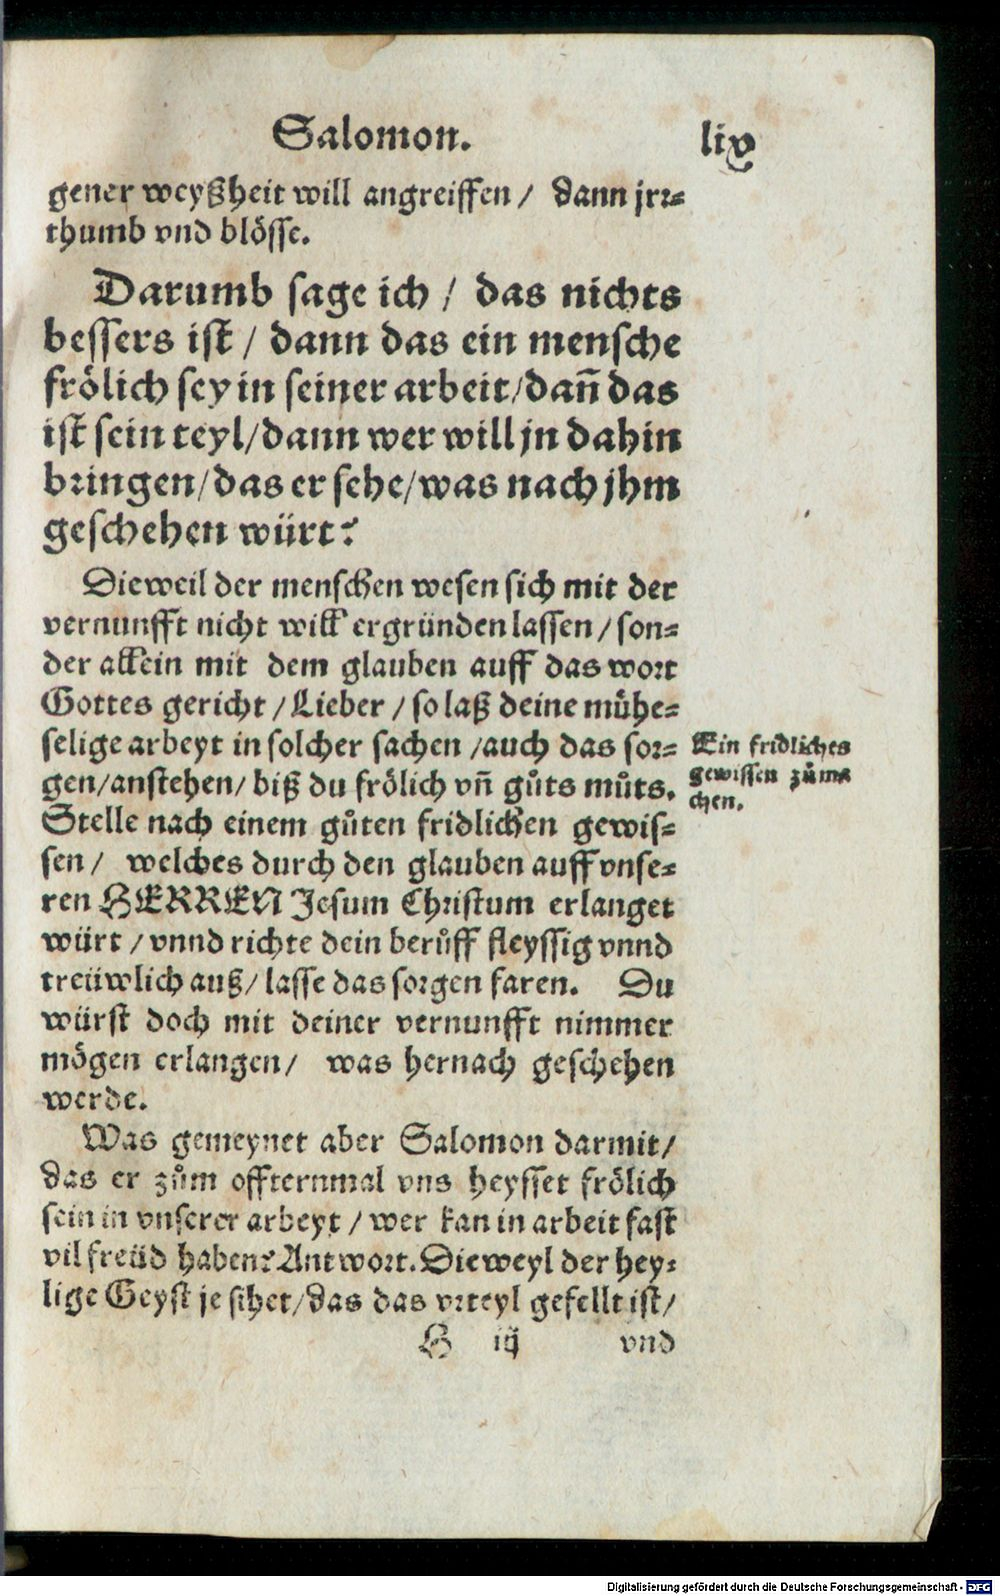 Salomon. lix
gener weyßheit will angreiffen / dann jrr-
thumb vnd blösse.
Darumb sage ich / das nichts
bessers ist / dann das ein mensche
frölich sey in seiner arbeit/dañ das
ist sein teyl/dann wer will jn dahin
bringen/das er sehe/was nach jhm
geschehen würt?
Dieweil der menschen wesen sich mit der
vernunfft nicht will ergründen lassen / son-
der allein mit dem glauben auff das wort
Gottes gericht / Lieber / so laß deine mühe-
selige arbeyt in solcher sachen /auch das sor-
gen/anstehen/ biß du frölich vñ gůts můts.
Stelle nach einem gůten fridlichen gewis-
sen / welches durch den glauben auff vnse-
ren HERREN Jesum Christum erlanget
würt / vnnd richte dein berůff fleyssig vnnd
treüwlich auß/ lasse das sorgen faren. Du
würst doch mit deiner vernunfft nimmer
mögen erlangen/ was hernach geschehen
werde.
Ein fridliches
gewissen zůma
chen.
Was gemeynet aber Salomon darmit/
das er zům offternmal vns heysset frölich
sein in vnserer arbeyt / wer kan in arbeit fast
vil freüd haben? Antwort. Dieweyl der hey-
lige Geyst je sihet/das das vrteyl gefellt ist/
H iij vnd
Digitalisierung gefördert durch die Deutsche Forschungsgemeinschaft - DFG